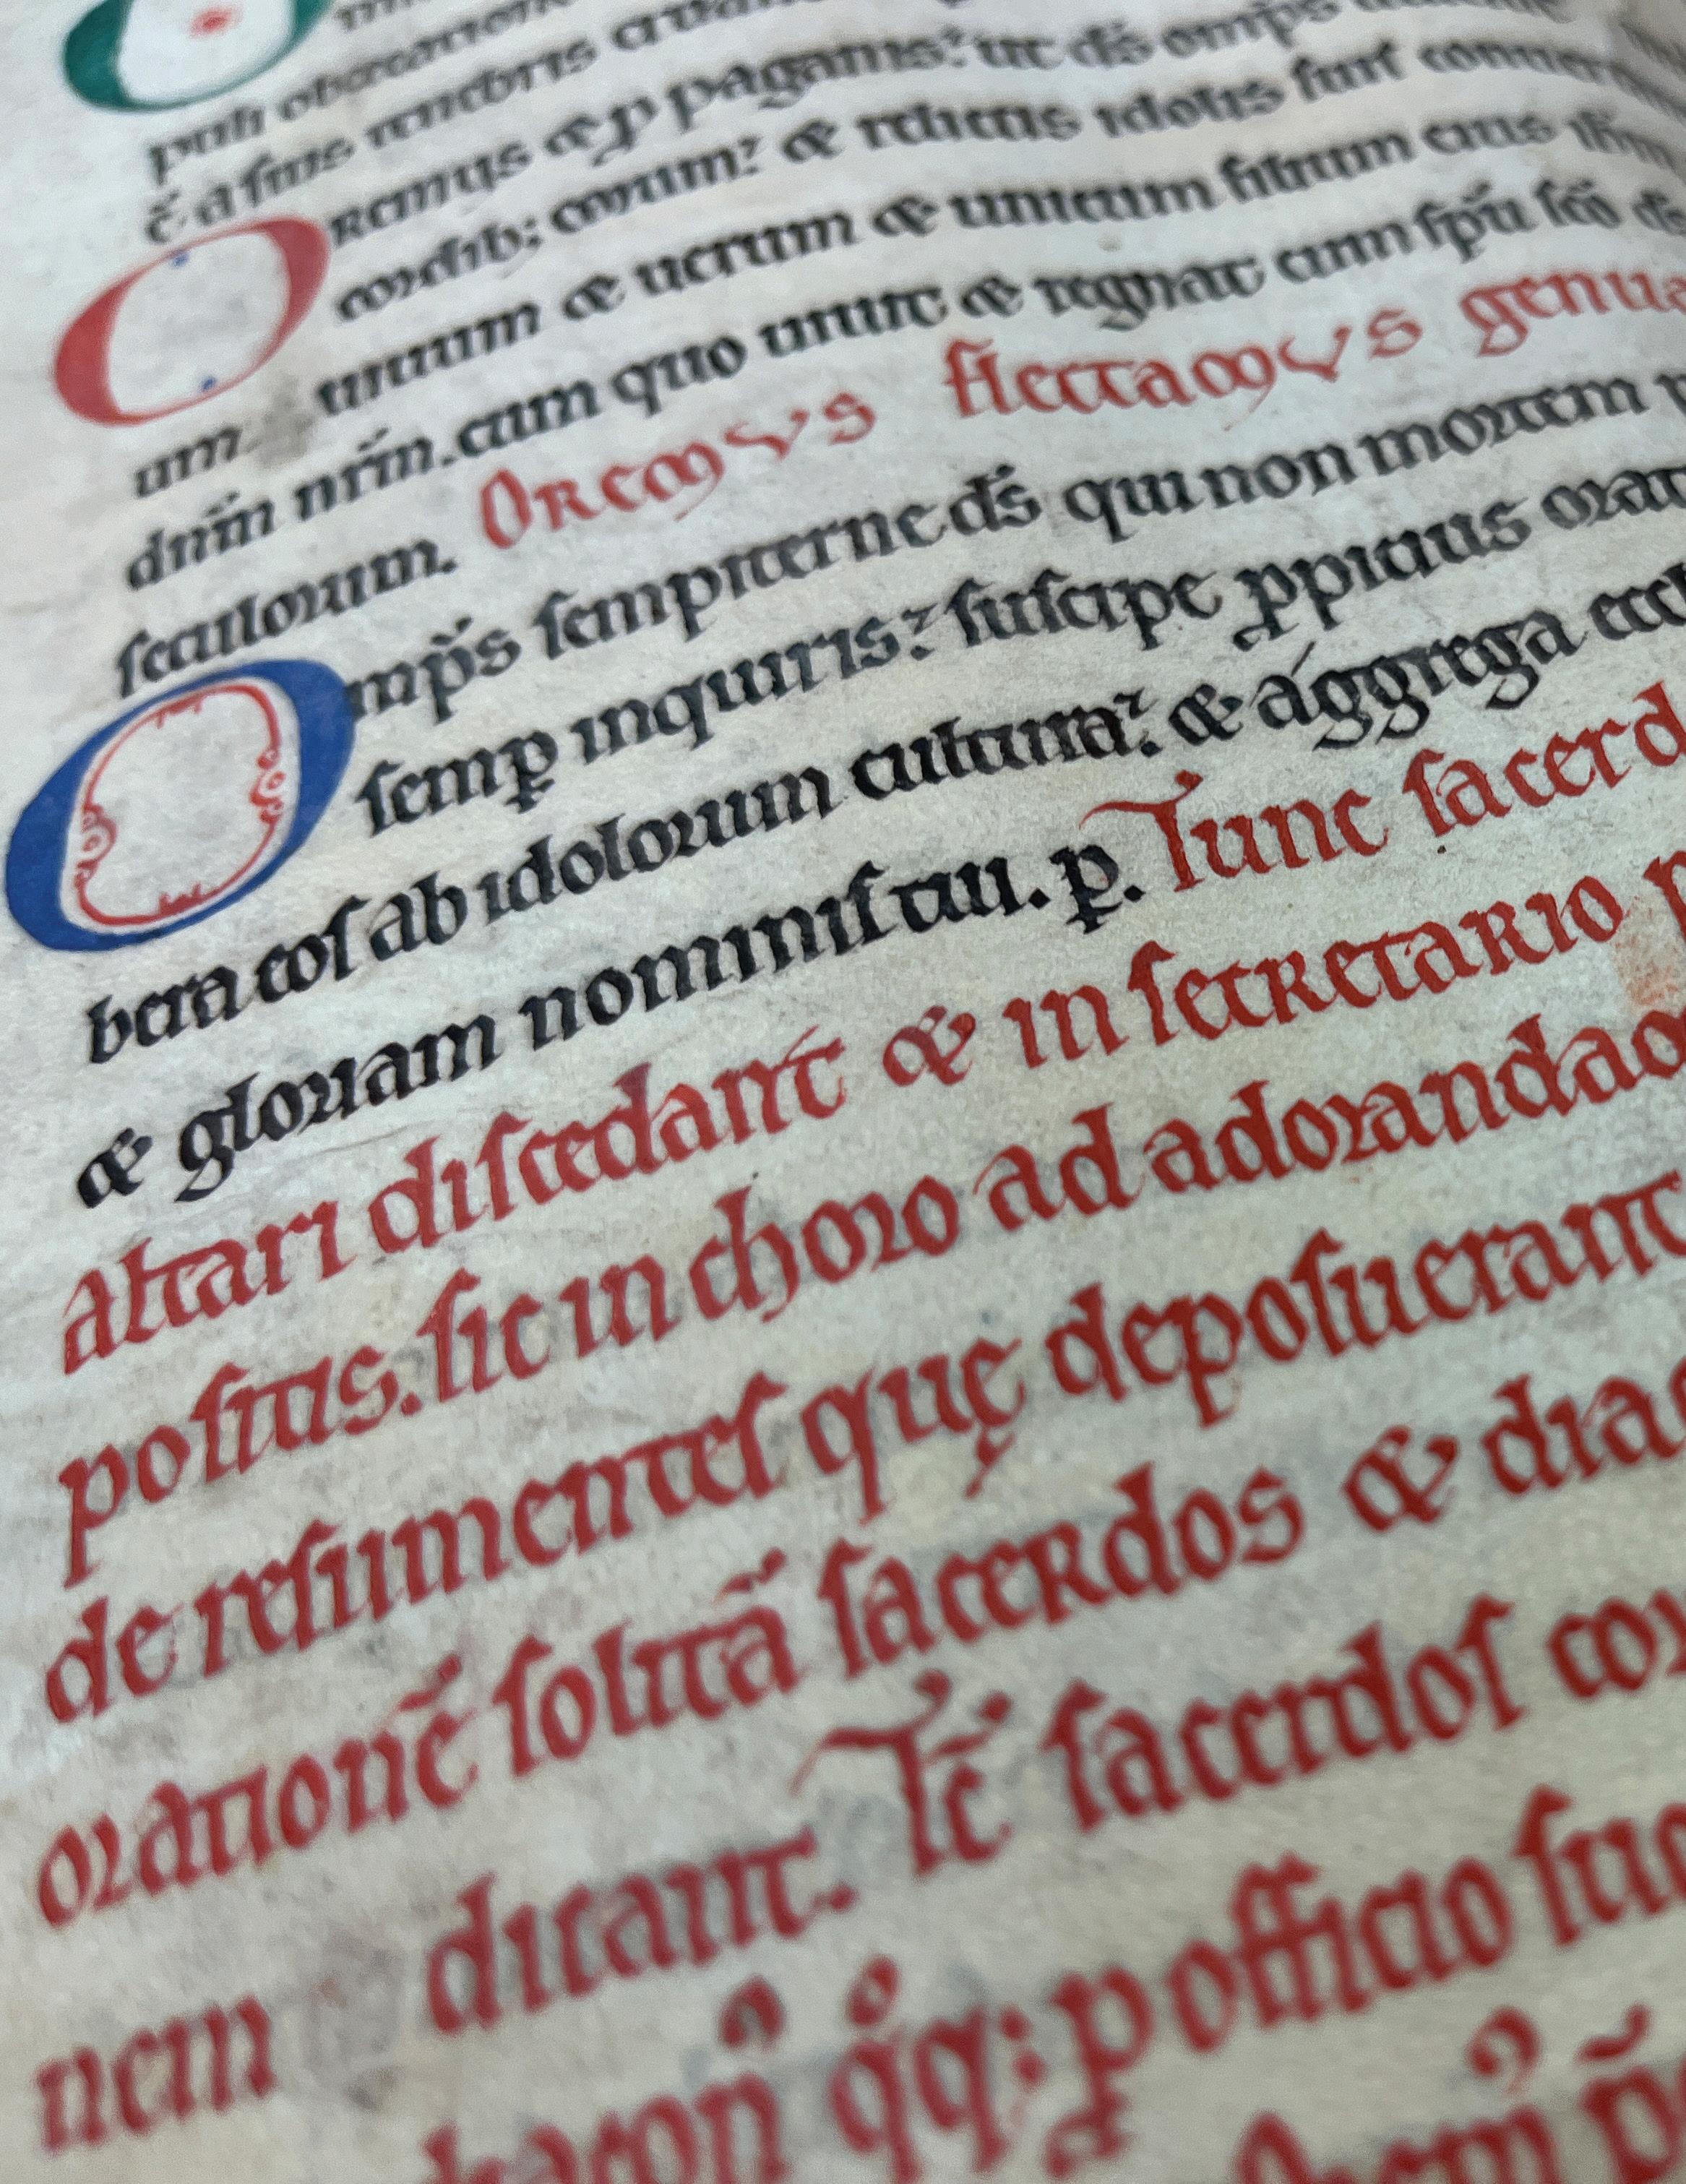 puli obcecatione
c̄. a suis tenebris eruat
Oremus & ꝓ paganis: ut dī̄s omīps
cordib; eorum: & relictis idolis suis conuertan
uiuum & uerum & unicum filium eius ihm̄
um
dnīn nrm̄. cum quo uiuit & regnat cum spū sc̄o dī̄s
seculorum. Oremus flectamus genua
Omīps sempiterne dī̄s qui non mortem
semꝑ inquiris: suscipe ꝓpitius orat
bera eos ab idolorum cultura: & aggrega eccl
& gloriam nominis tui. ꝑ. Tunc sacerd
altari discedant & in secretario
positis. sic in choro ad adorandam
de resumentes quę deposuerant
orationē solitā sacerdos & diac
nem dicant. Tc̄ sacerdos
officio suo